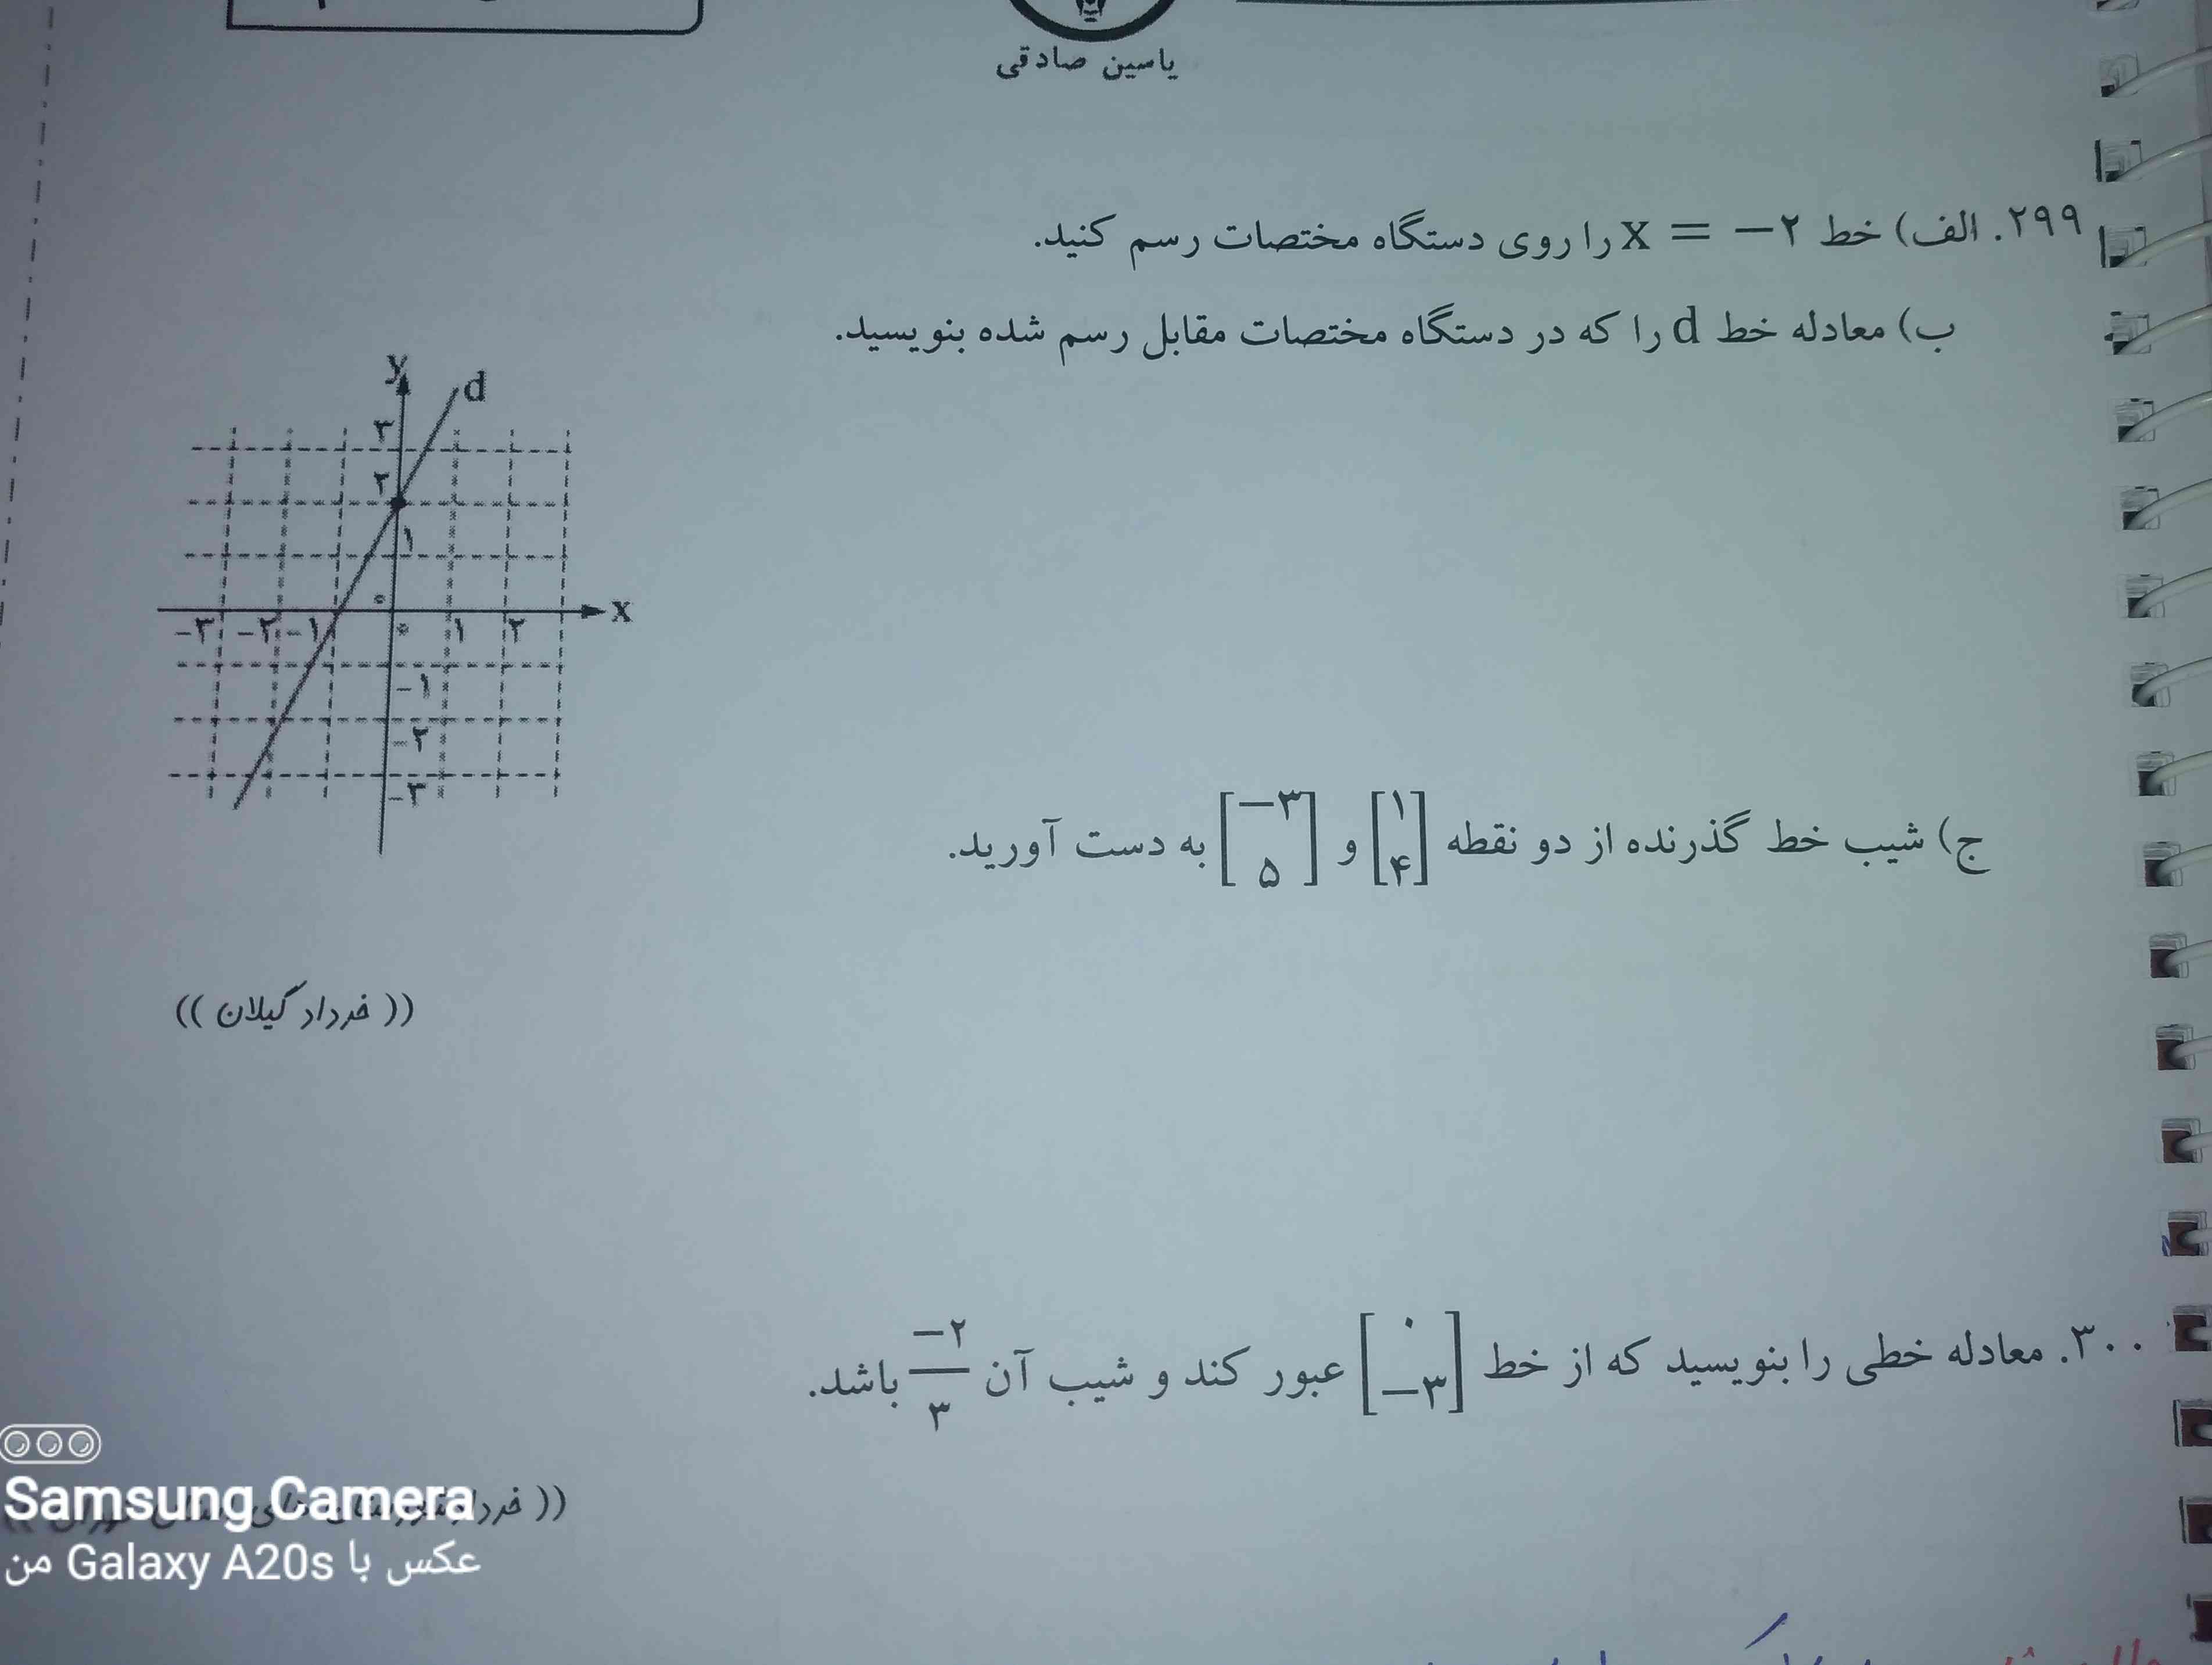 یاسین صادقی
۲۹۹. الف) خط x = −۲ را روی دستگاه مختصات رسم کنید.
ب) معادله خط d را که در دستگاه مختصات مقابل رسم شده بنویسید.
y
d
۳
۲
۱
۰
x
−۳ −۲ −۱ ۰ ۱ ۲
−۱
−۲
−۳
ج) شیب خط گذرنده از دو نقطه [۱ ۴] و [−۳ ۵] به دست آورید.
(( خرداد گیلان ))
۳۰۰. معادله خطی را بنویسید که از خط [۰ −۳] عبور کند و شیب آن −۲/۳ باشد.
(( خرداد
Samsung Camera
عکس با Galaxy A20s من